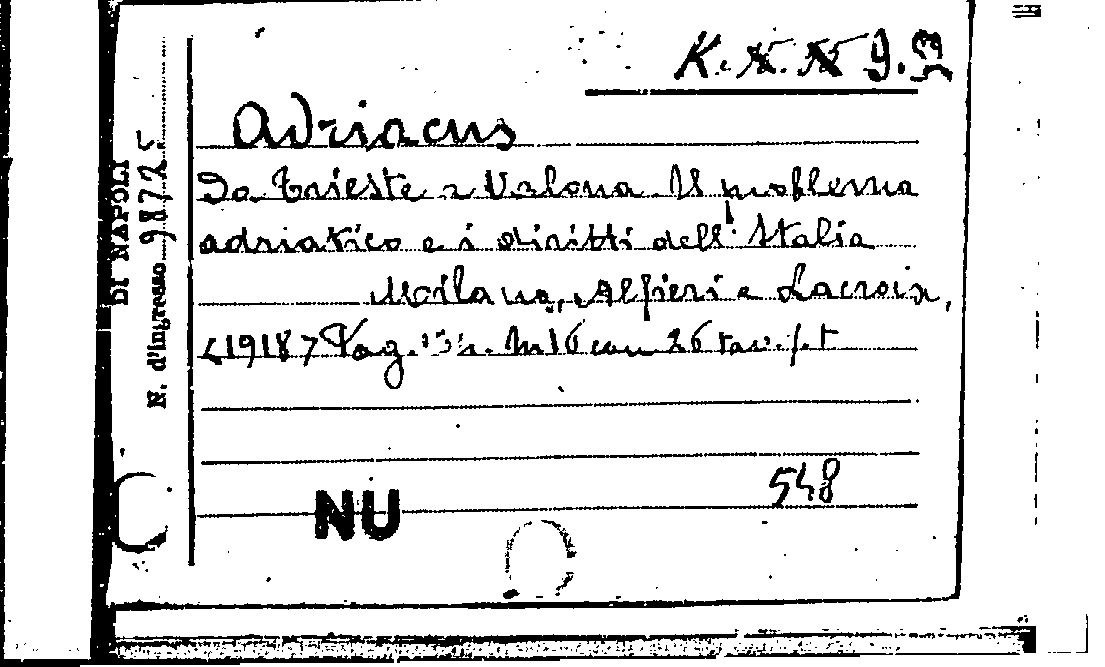 Adriacus
Da Trieste a Valona. Il problema
adriatico e i diritti dell'Italia
Milano, Alfieri e Lacroix,
<1918> Pag. in 16 con 26 tav. f. t
548
NU
DI NAPOLI
N. d'ingresso 98725